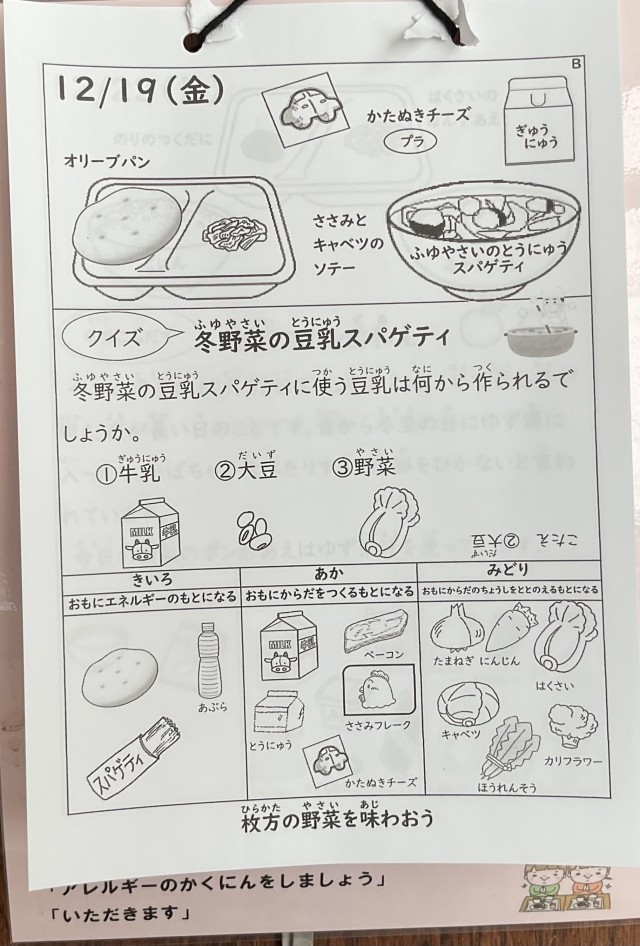 B
12/19(金)
かたぬきチーズ
プラ
ぎゅう
にゅう
オリーブパン
ささみと
キャベツの
ソテー
ふゆやさいのとうにゅう
スパゲティ
クイズ
ふゆやさい とうにゅう
冬野菜の豆乳スパゲティ
ふゆやさい とうにゅう つか とうにゅう なに つく
冬野菜の豆乳スパゲティに使う豆乳は何から作られるで
しょうか。
ぎゅうにゅう だいず やさい
①牛乳 ②大豆 ③野菜
MILK
こたえ ②大豆
だいず
きいろ あか みどり
おもにエネルギーのもとになる おもにからだをつくるもとになる おもにからだのちょうしをととのえるもとになる
MILK
ベーコン
たまねぎ にんじん
はくさい
あぶら
ささみフレーク
とうにゅう
キャベツ
カリフラワー
スパゲティ
かたぬきチーズ
ほうれんそう
ひらかた やさい あじ
枚方の野菜を味わおう
「アレルギーのかくにんをしましょう」
「いただきます」